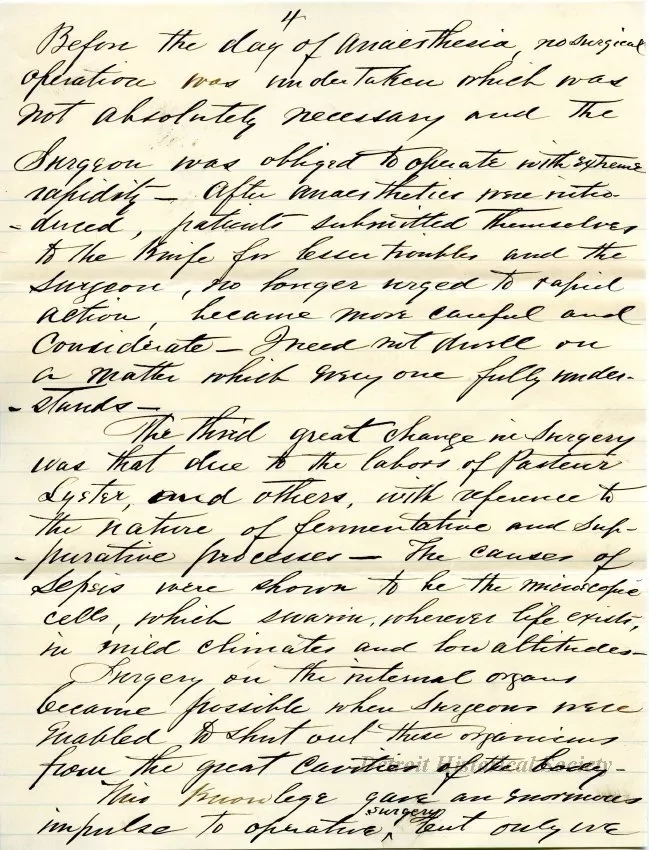 4
Before the day of anaesthesia, no surgical
operation was undertaken which was
not absolutely necessary and the
Surgeon was obliged to operate with extreme
rapidity — After anaesthetics were intro-
-duced, patients submitted themselves
to the knife for lesser troubles and the
surgeon, no longer urged to rapid
action, became more careful and
considerate — I need not dwell on
a matter which every one fully under-
-stands —
The third great change in Surgery
was that due to the labors of Pasteur
Lyster, and others, with reference to
the nature of fermentative and sup-
-purative processes — The causes of
Sepsis were shown to be the microscopic
cells, which swarm, wherever life exists,
in mild climates and low altitudes —
Surgery on the internal organs
became possible when Surgeons were
enabled to shut out these organisms
from the great cavities of the body -
Detroit Historical Society
This knowlege gave an enormous
surgery
impulse to operative, ^ but only we